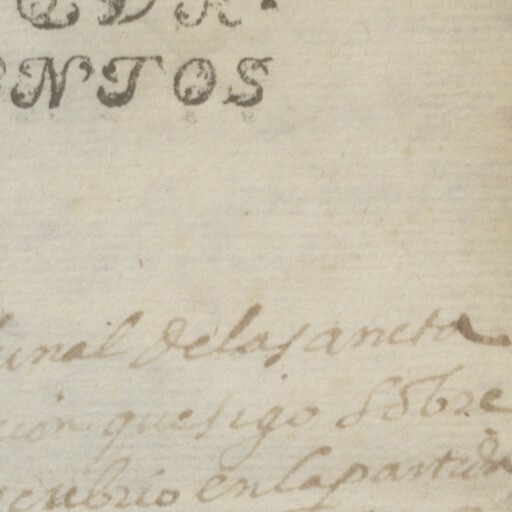 NTOS
unal de la sancta
cion que sigo sobre
cubrio en la partida